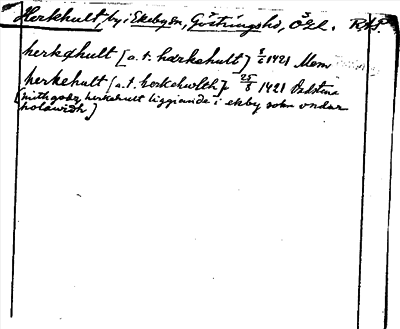 Herkhult, by i Ekeby sn, Göstringshd, Ögl. RAP.
herkahult [a. t. hærkahult] 8/6 1421 Mem
herkehult [a. t. herkehwlth] 25/8 1421
[mith godz herkehult liggiande i ekby sokn vndar
holawidh]